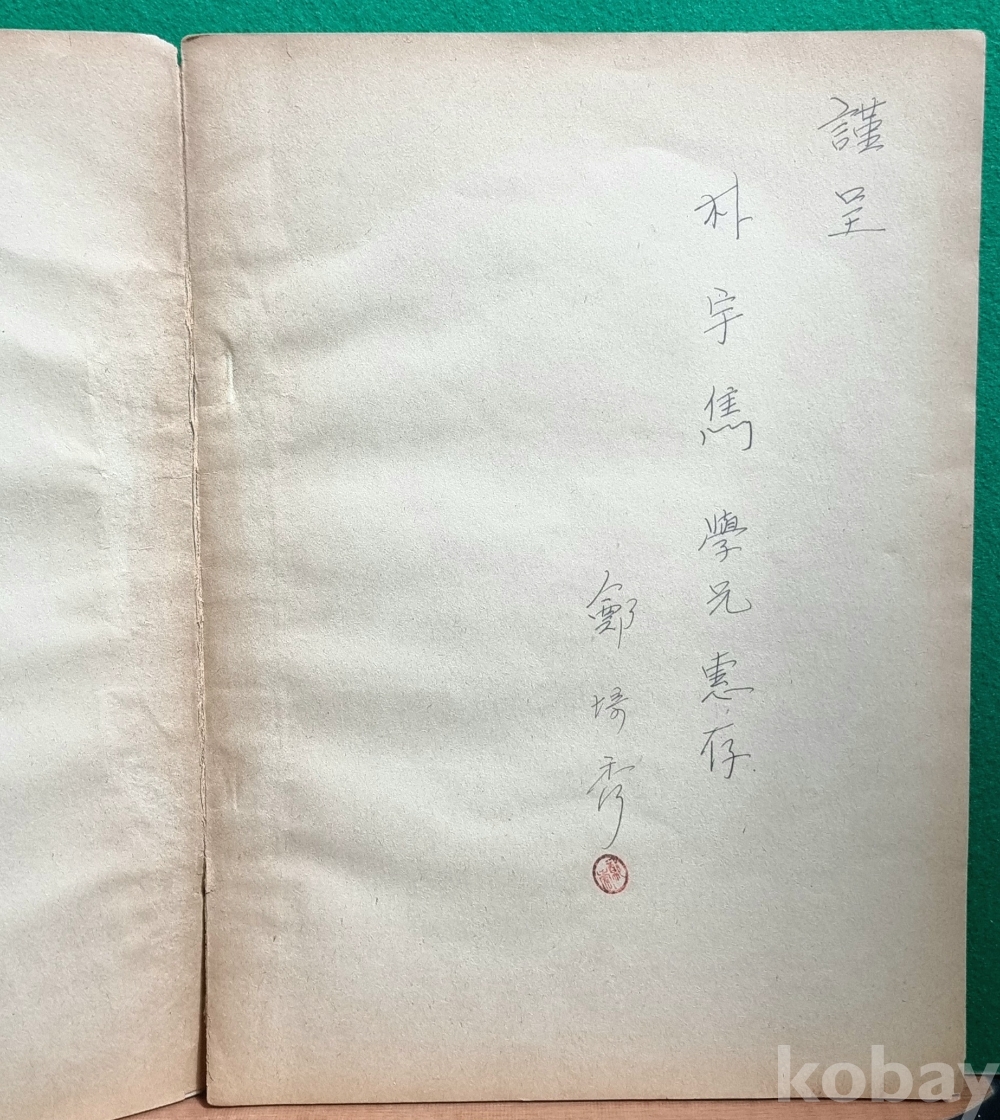 謹呈
朴宇雋學兄惠存
鄭埼秀
kobay